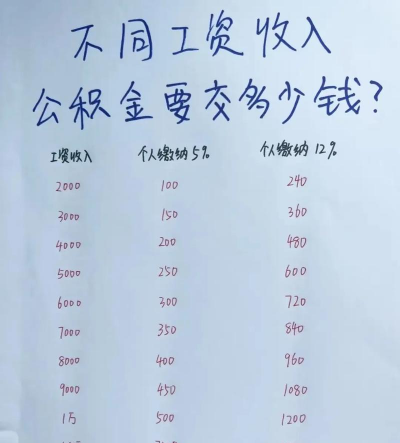 不同工资收入
公积金要交多少钱?
工资收入 个人缴纳5% 个人缴纳12%
2000 100 240
3000 150 360
4000 200 480
5000 250 600
6000 300 720
7000 350 840
8000 400 960
9000 450 1080
1万 500 1200